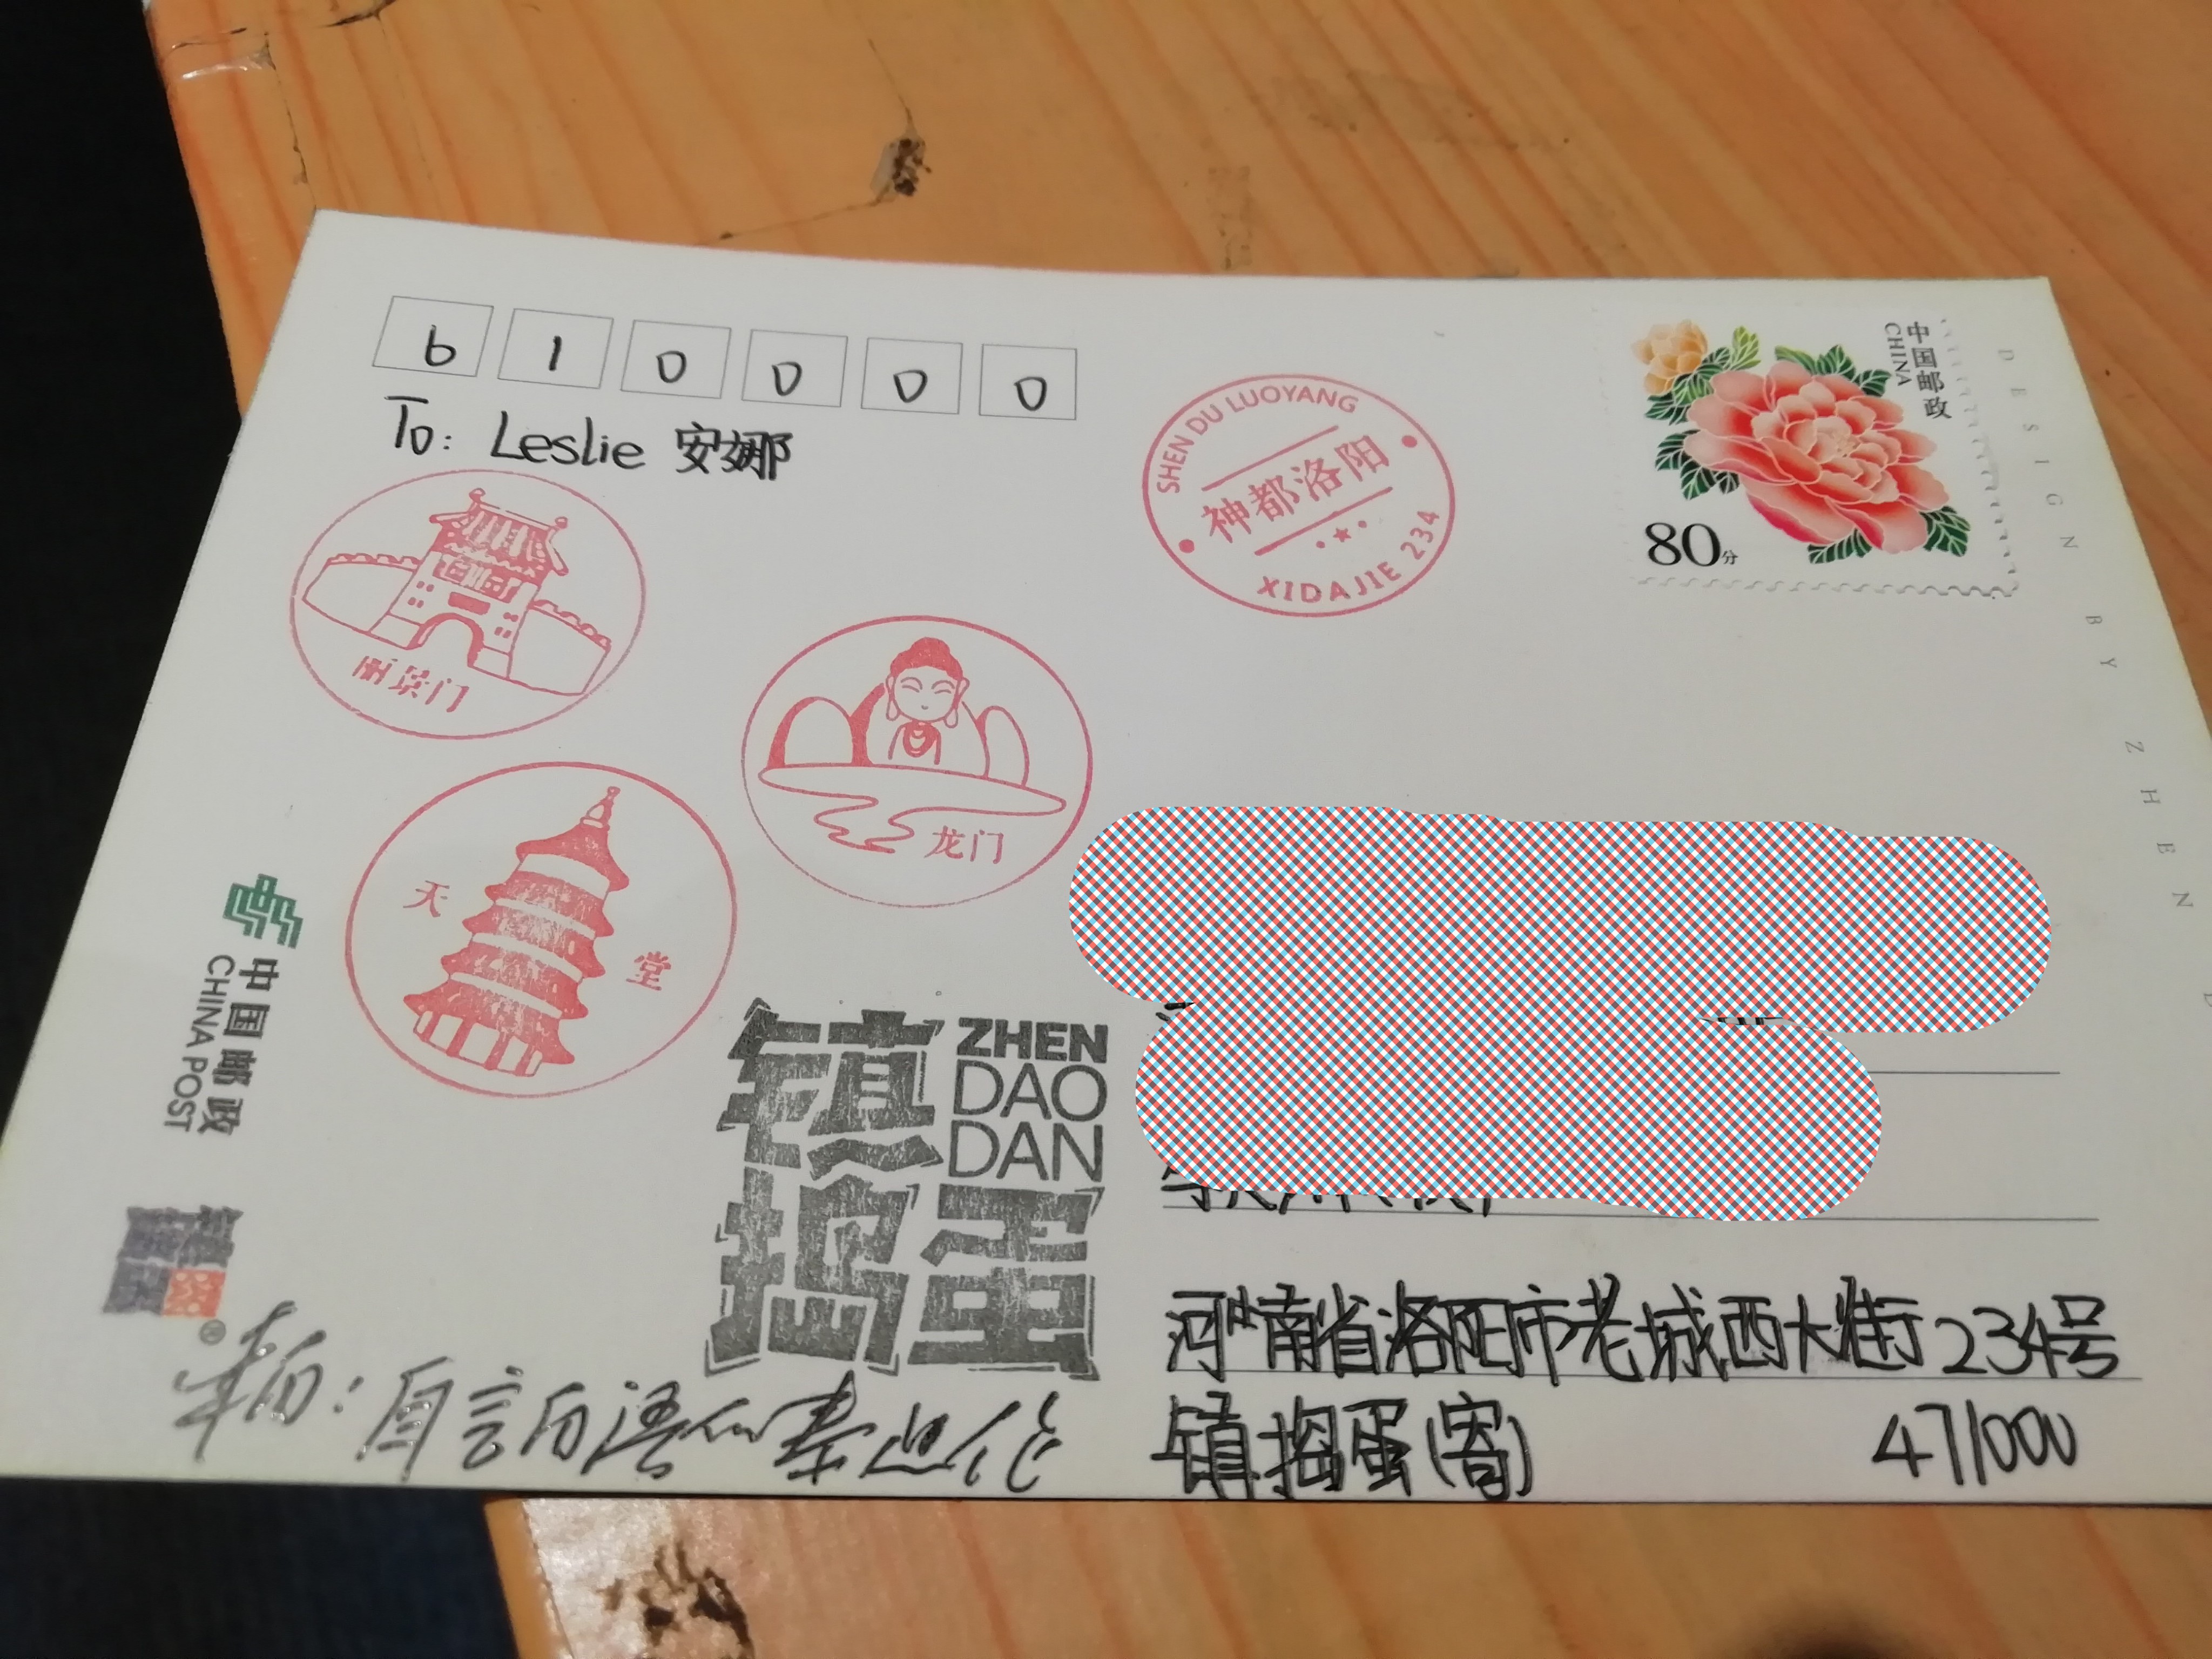 610000
To: Leslie 安娜
SHEN DU LUOYANG
神都洛阳
XIDAJIE 234
中国邮政
CHINA
80分
DESIGN BY ZHEN D
丽景门
龙门
天堂
中国邮政
CHINA POST
镇
ZHEN
DAO
DAN
捣蛋
河南省洛阳市老城西大街234号
镇捣蛋(寄) 471000
来自:自言自语的秦思伦